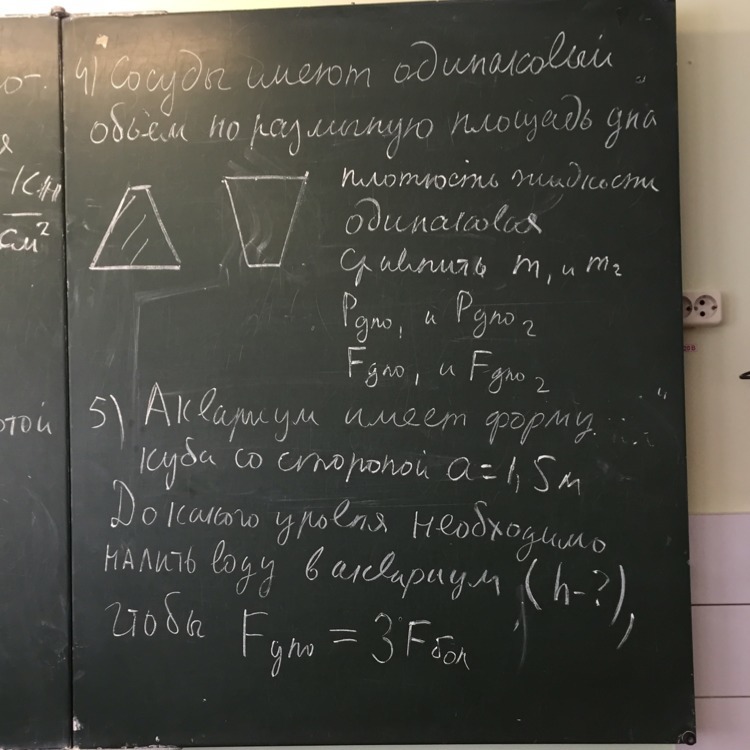 4) Сосуды имеют одинаковый
объём но различную площадь дна
плотность жидкости
одинаковая
Сравнить m₁ и m₂
Pдно₁ и Pдно₂
Fдно₁ и Fдно₂
5) Аквариум имеет форму
куба со стороной a=1,5м
До какого уровня необходимо
налить воду в аквариум (h-?),
чтобы Fдно = 3Fбок
о-
я
КН
см²
отой